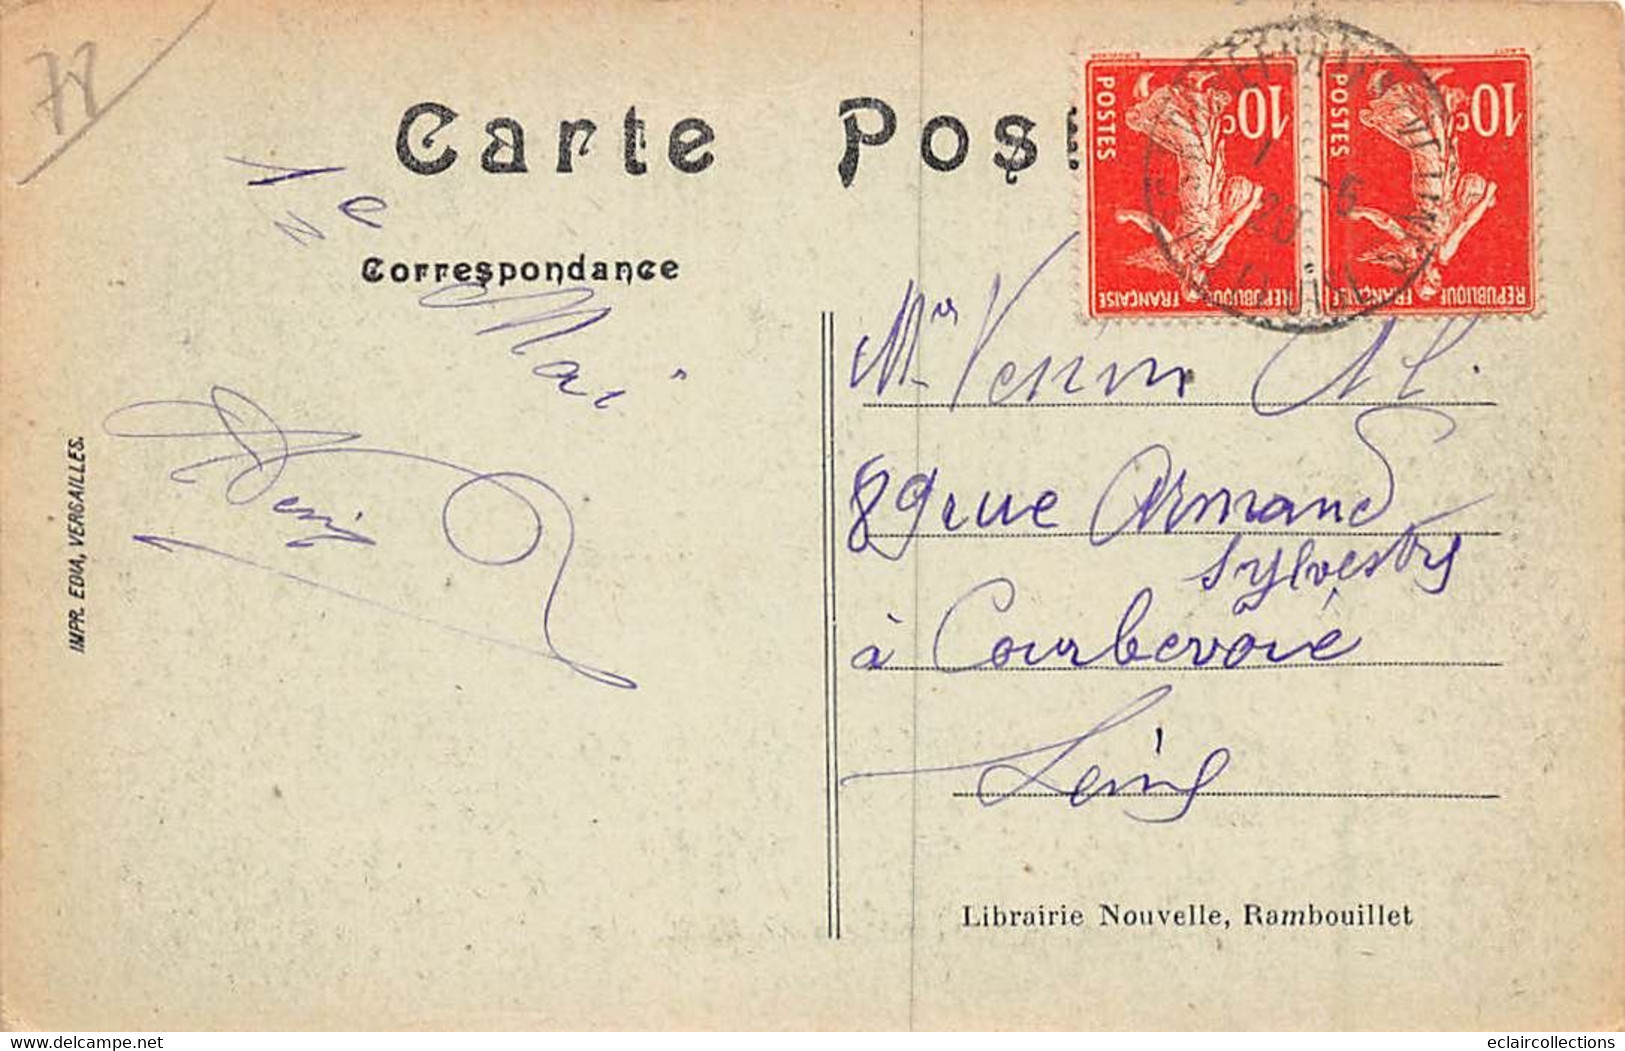 78
Carte Post
1e
Correspondance
Mai
Denis
IMPR. EDIA, VERSAILLES.
10c 10c
POSTES POSTES
REPUBLIQUE FRANÇAISE REPUBLIQUE FRANÇAISE
20 -5
Mr Al.
89 rue Armand
Sylvestre
à Courbevoie
Seine
Librairie Nouvelle, Rambouillet
www.delcampe.net
eclaircollections